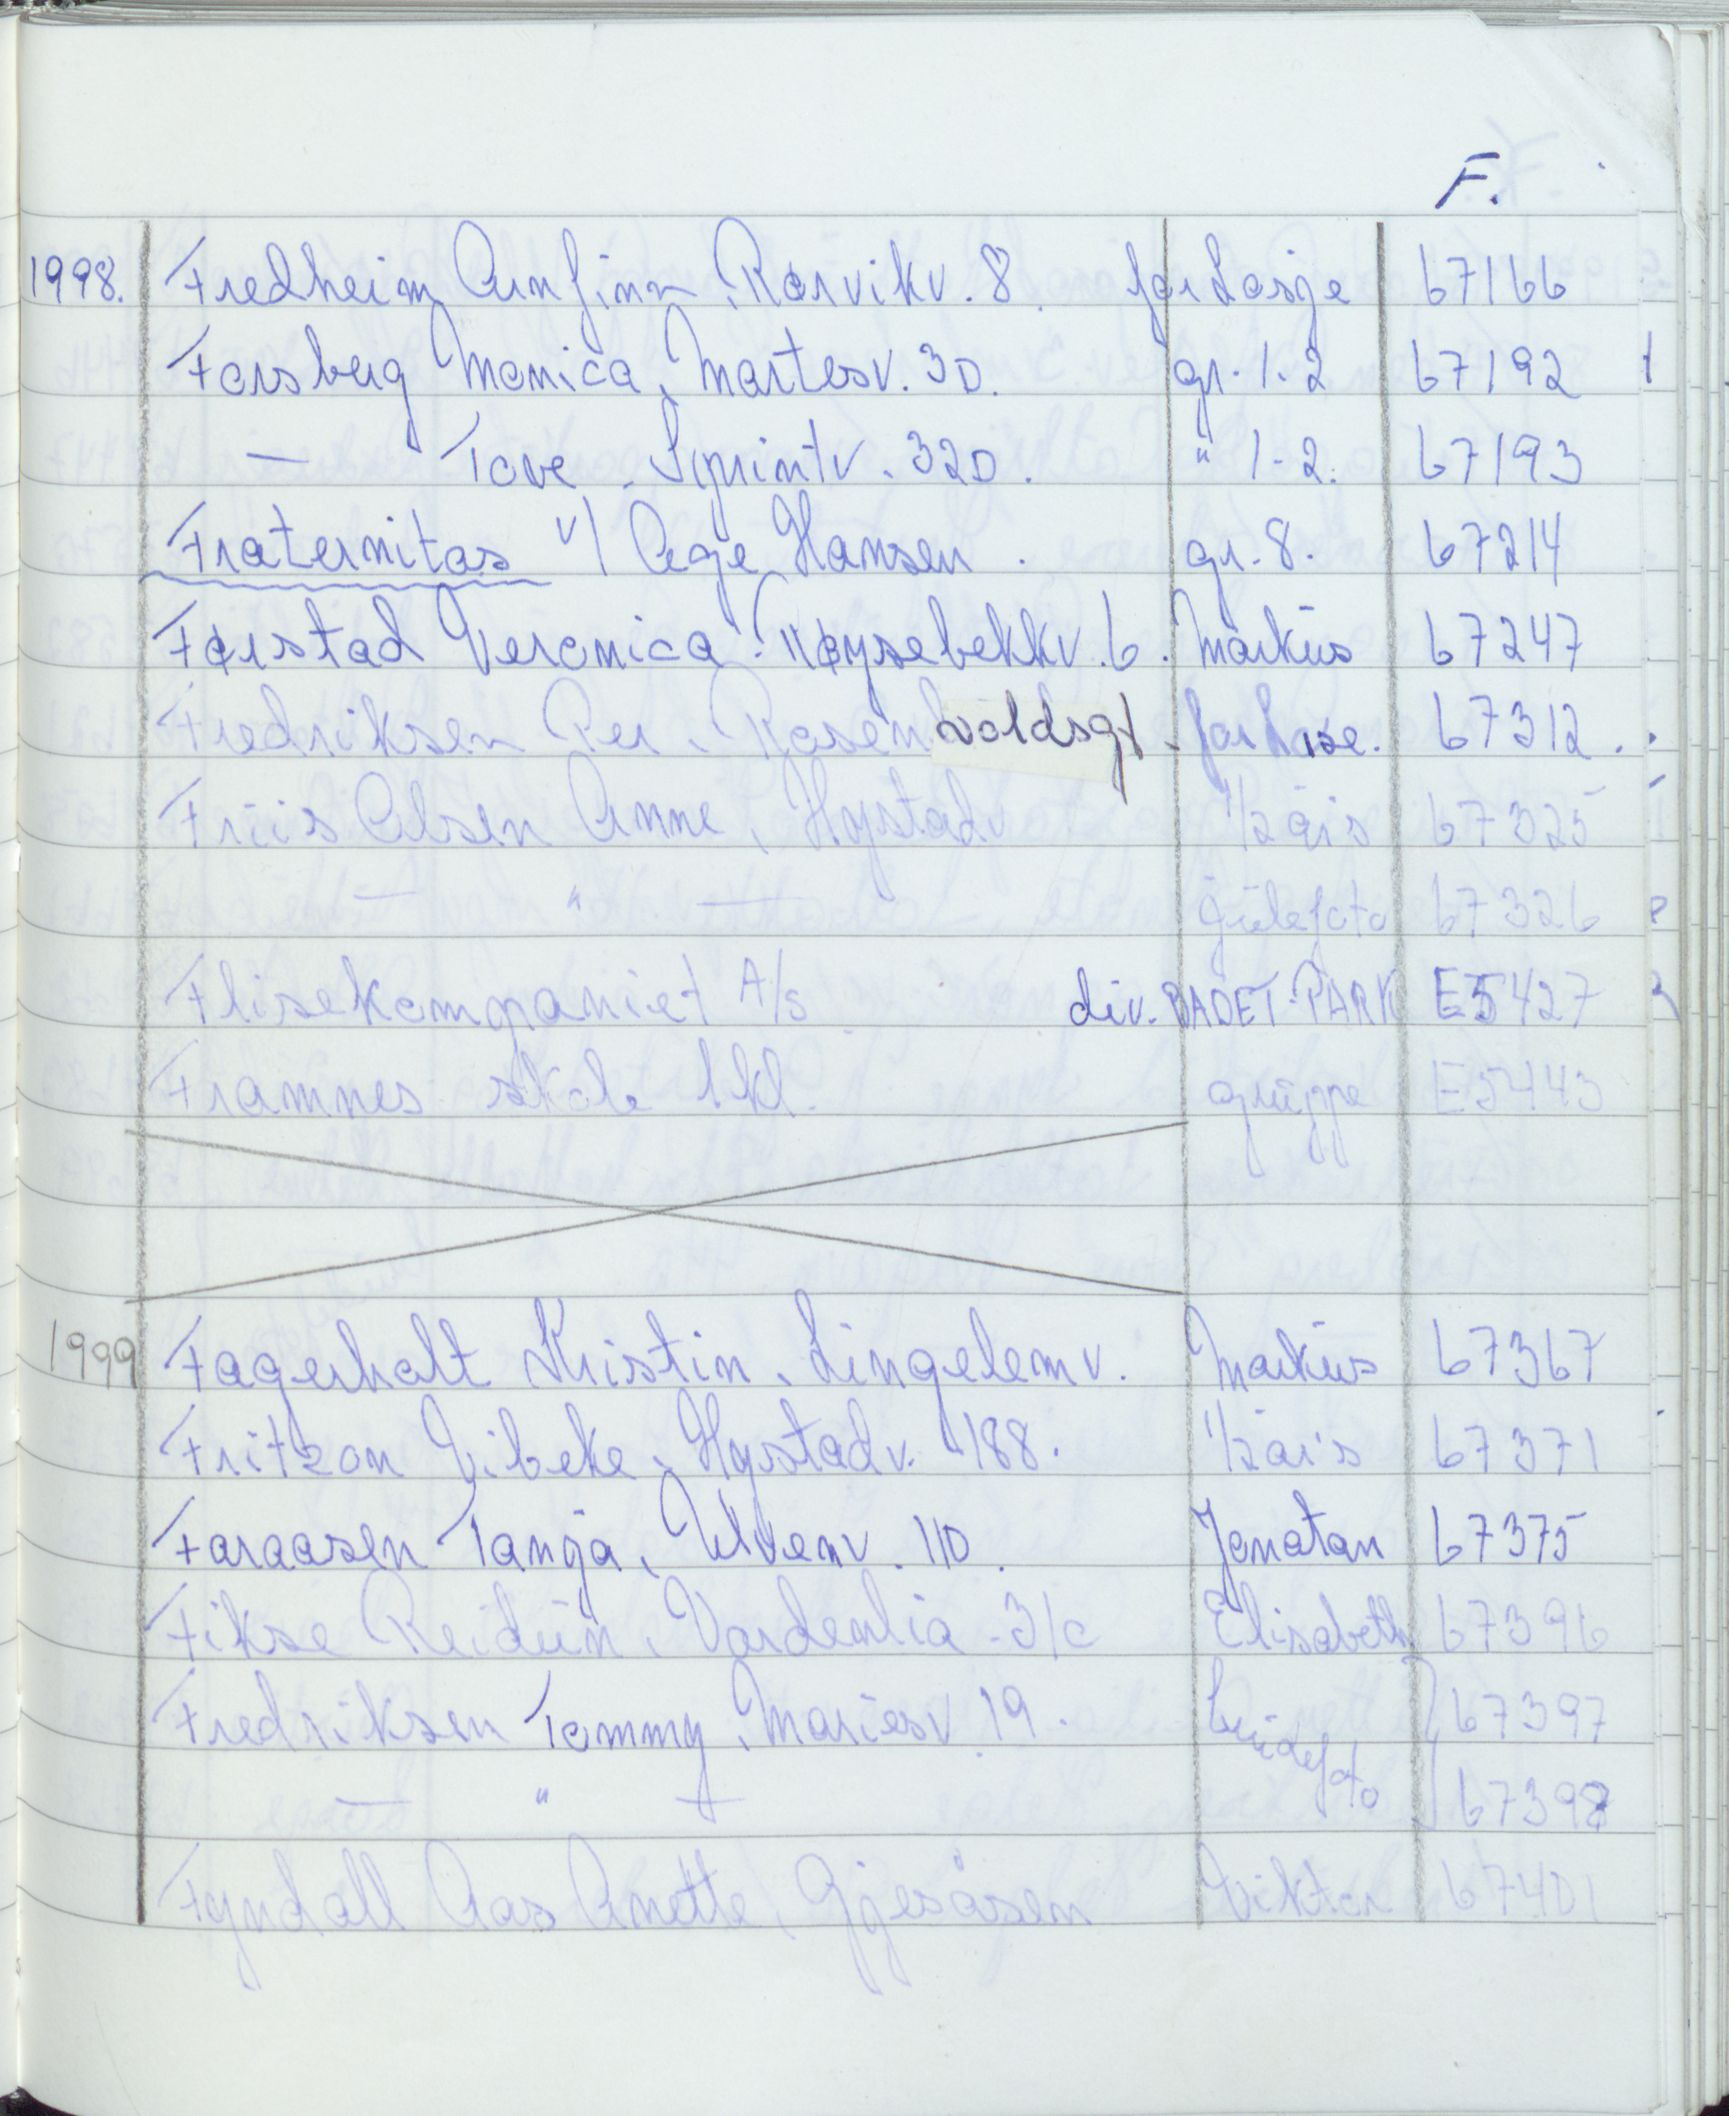 F.
1998. Fredheim Arnfinn, Rørvikv. 8. for Losje 67166
Forsberg Monica, Martesv. 3D. gr. 1-2 67192
— Tove, Sprintv. 32D. " 1-2. 67193
Fraternitas v/ Åge Hansen. gr. 8. 67214
Farstad Veronica, Røysebekkv. 6. Markus 67247
Fredriksen Per, Rosenvoldsgt. for Lose. 67312.
Friis Olsen Anne, Hystadv 1/2 års 67325
— " — gullfoto 67326
Flisekompaniet A/s div. BADET-PARK E5427
Framnes skole 1kl. gruppe E5443
1999 Fagerholt Kristin, Lingelemv. Markus 67367
Fritzon Vibeke, Hystadv. 188. 1/2 års 67371
Faraasen Tanja, Ulvenv. 11D. Jonatan 67375
Fikse Reidun, Vardenlia 31c Elisabeth 67396
Fredriksen Tommy, Mariesv 19. 67397
— " — 67398
Fyndall Aas Anette, Gjesåsen Viktor 67401